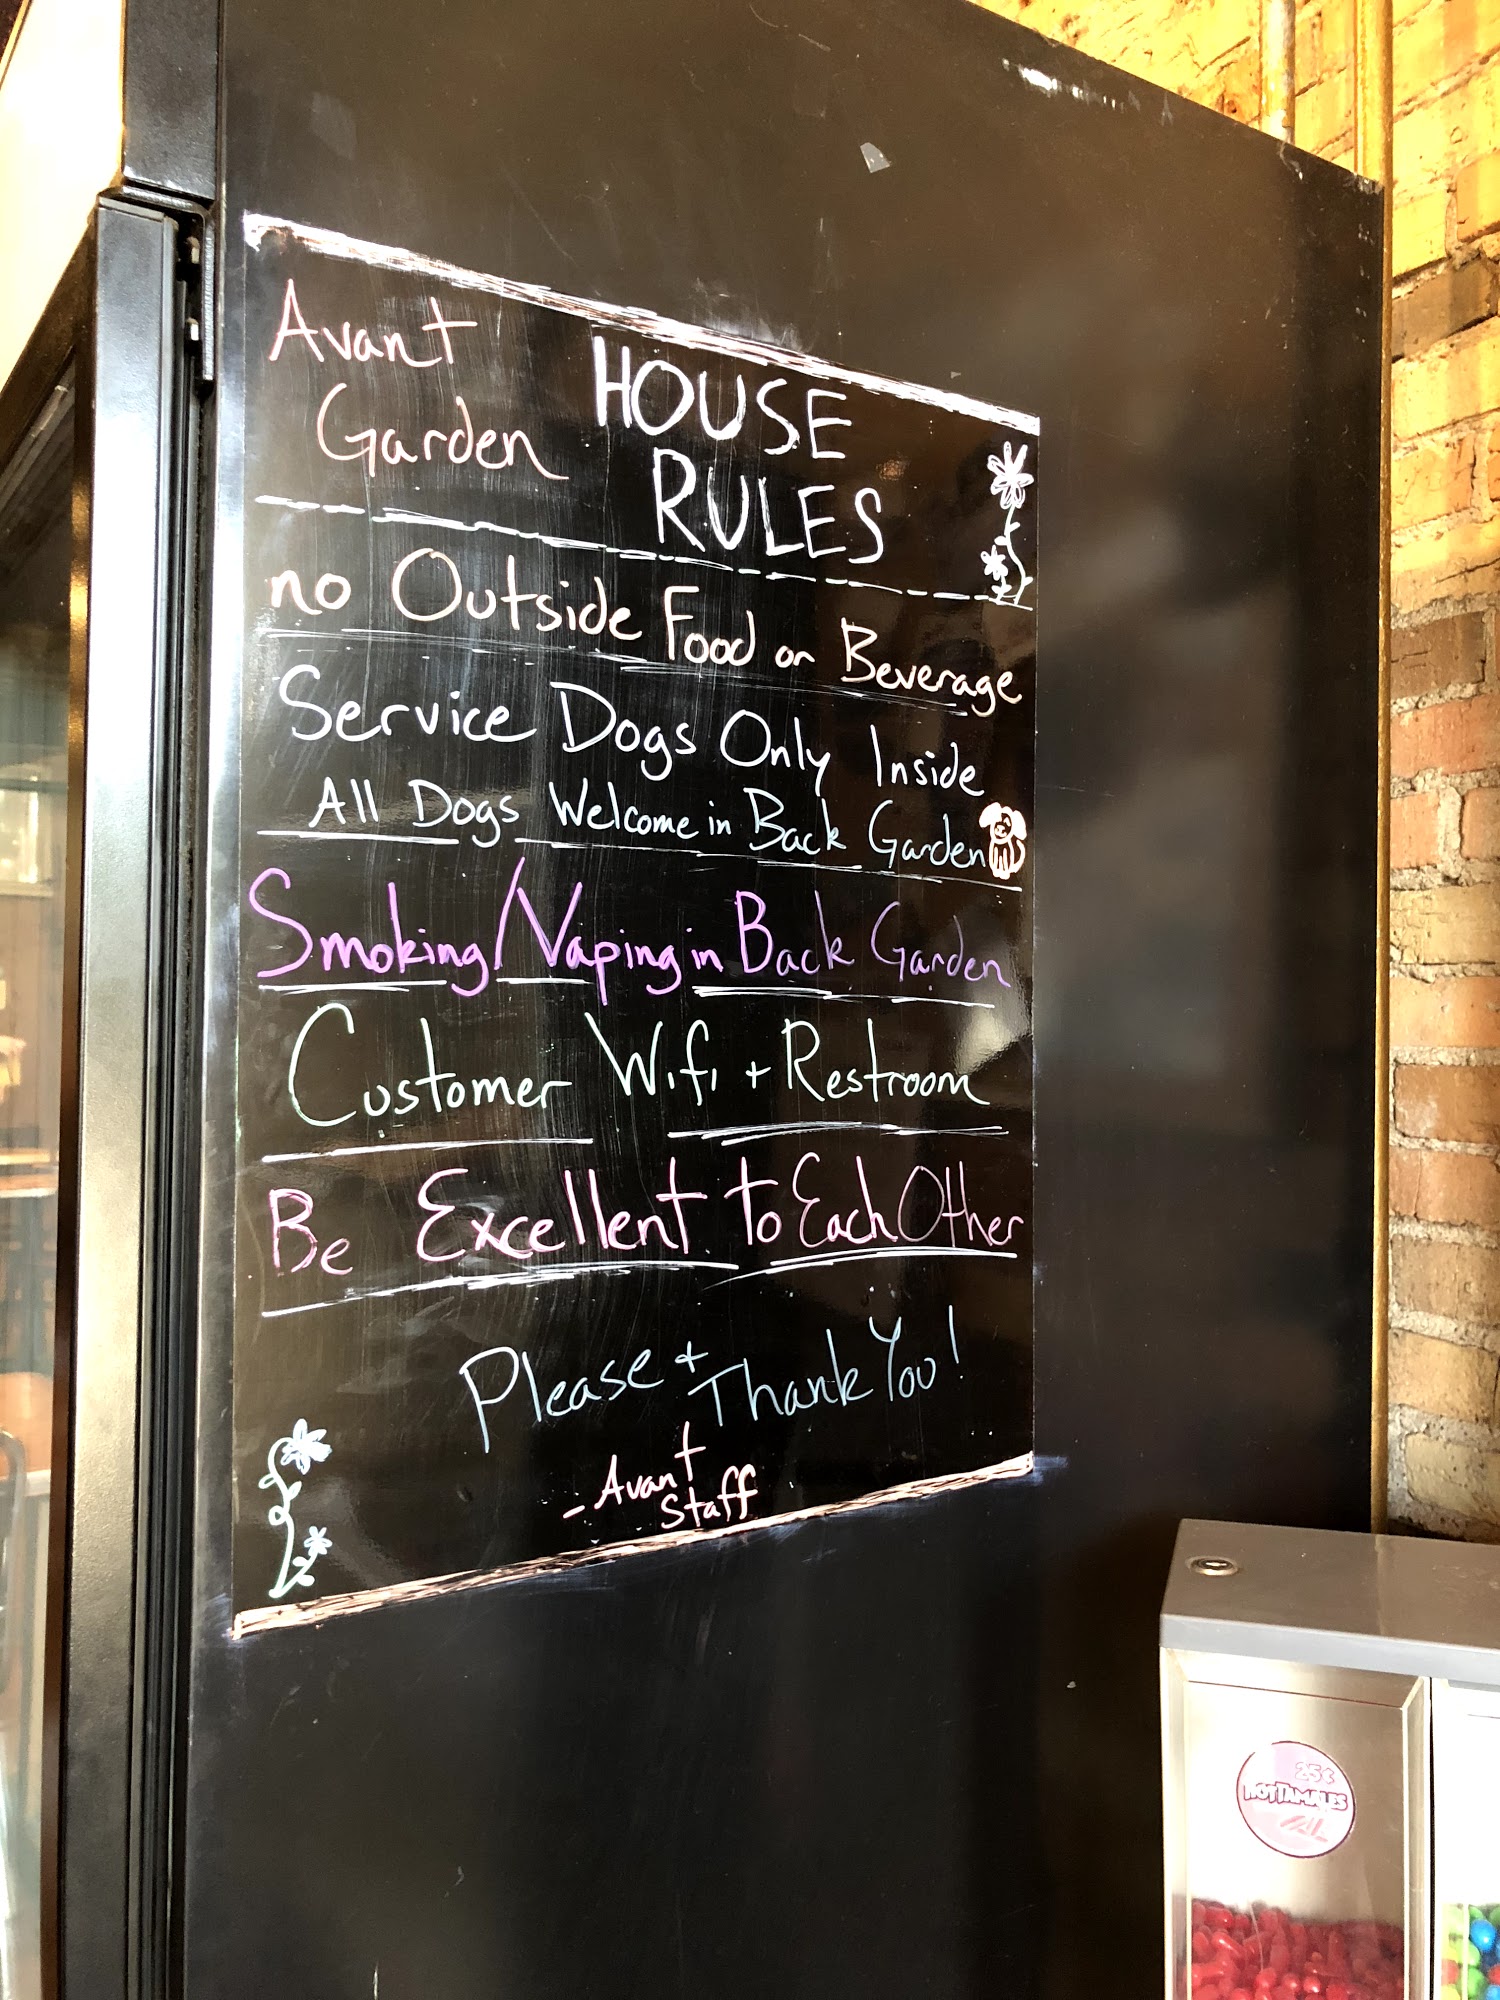 Avant
Garden
HOUSE
RULES
no Outside Food or Beverage
Service Dogs Only Inside
All Dogs Welcome in Back Garden
Smoking/Vaping in Back Garden
Customer Wifi + Restroom
Be Excellent to Each Other
Please + Thank You!
- Avant
Staff
25¢
HOT TAMALES